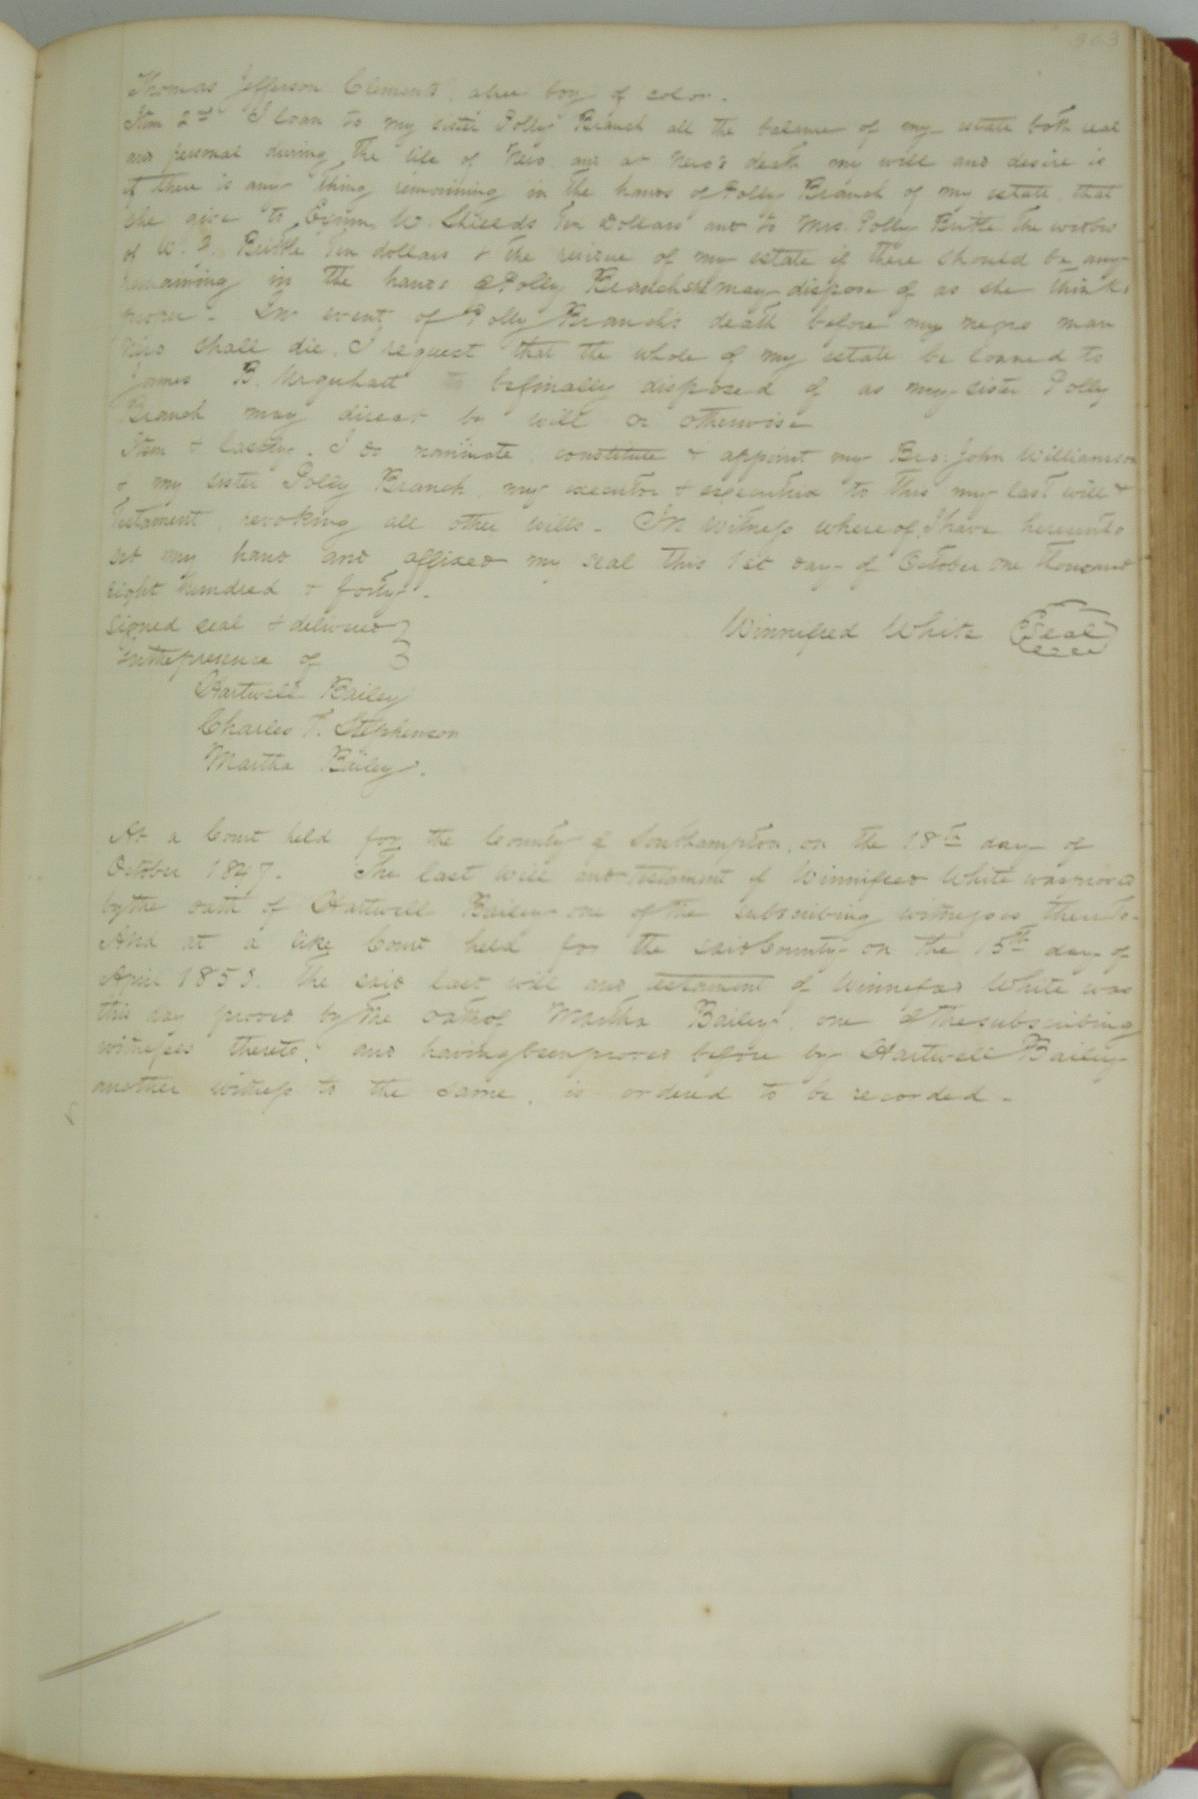 363
Thomas Jefferson Clements, a free boy of color.
Item 2nd I loan to my sister Polly Branch all the balance of my estate both real
and personal during the life of Nero and at Nero's death my will and desire is
if there is any thing remaining in the hands of Polly Branch of my estate that
she give to W. Shields Ten Dollars and to Mrs. Polly Britle the widow
of W. Britle Ten dollars & the residue of my estate if there should be any
remaining in the hands of Polly Branch she may dispose of as she thinks
proper. In event of Polly Branch's death before my negro man
Nero shall die, I request that the whole of my estate be loaned to
James B. Urquhart to be finally disposed of as my sister Polly
Branch may direct by will or otherwise
Item & lastly. I do nominate, constitute & appoint my Bro: John Williamson
& my sister Polly Branch, my executor & executrix to this my last will &
Testament, revoking all other wills. In witness where of, I have hereunto
set my hand and affixed my seal this 1st day of October one thousand
eight hundred & forty.
Signed seal & delivered
in the presence of
Winnifred White Seal
Hartwell Bailey
Charles T. Stephenson
Martha Bailey.
At a Court held for the County of Southampton, on the 18th day of
October 1847. The last will and testament of Winnifred White was proved
by the oath of Hartwell Bailey one of the subscribing witnesses thereto.
And at a like Court held for the said County on the 15th day of
April 1853. The said last will and testament of Winnefred White was
this day proved by the oath of Martha Bailey, one of the subscribing
witnesses thereto, and having been proved before by Hartwell Bailey
another witness to the same, is ordered to be recorded.